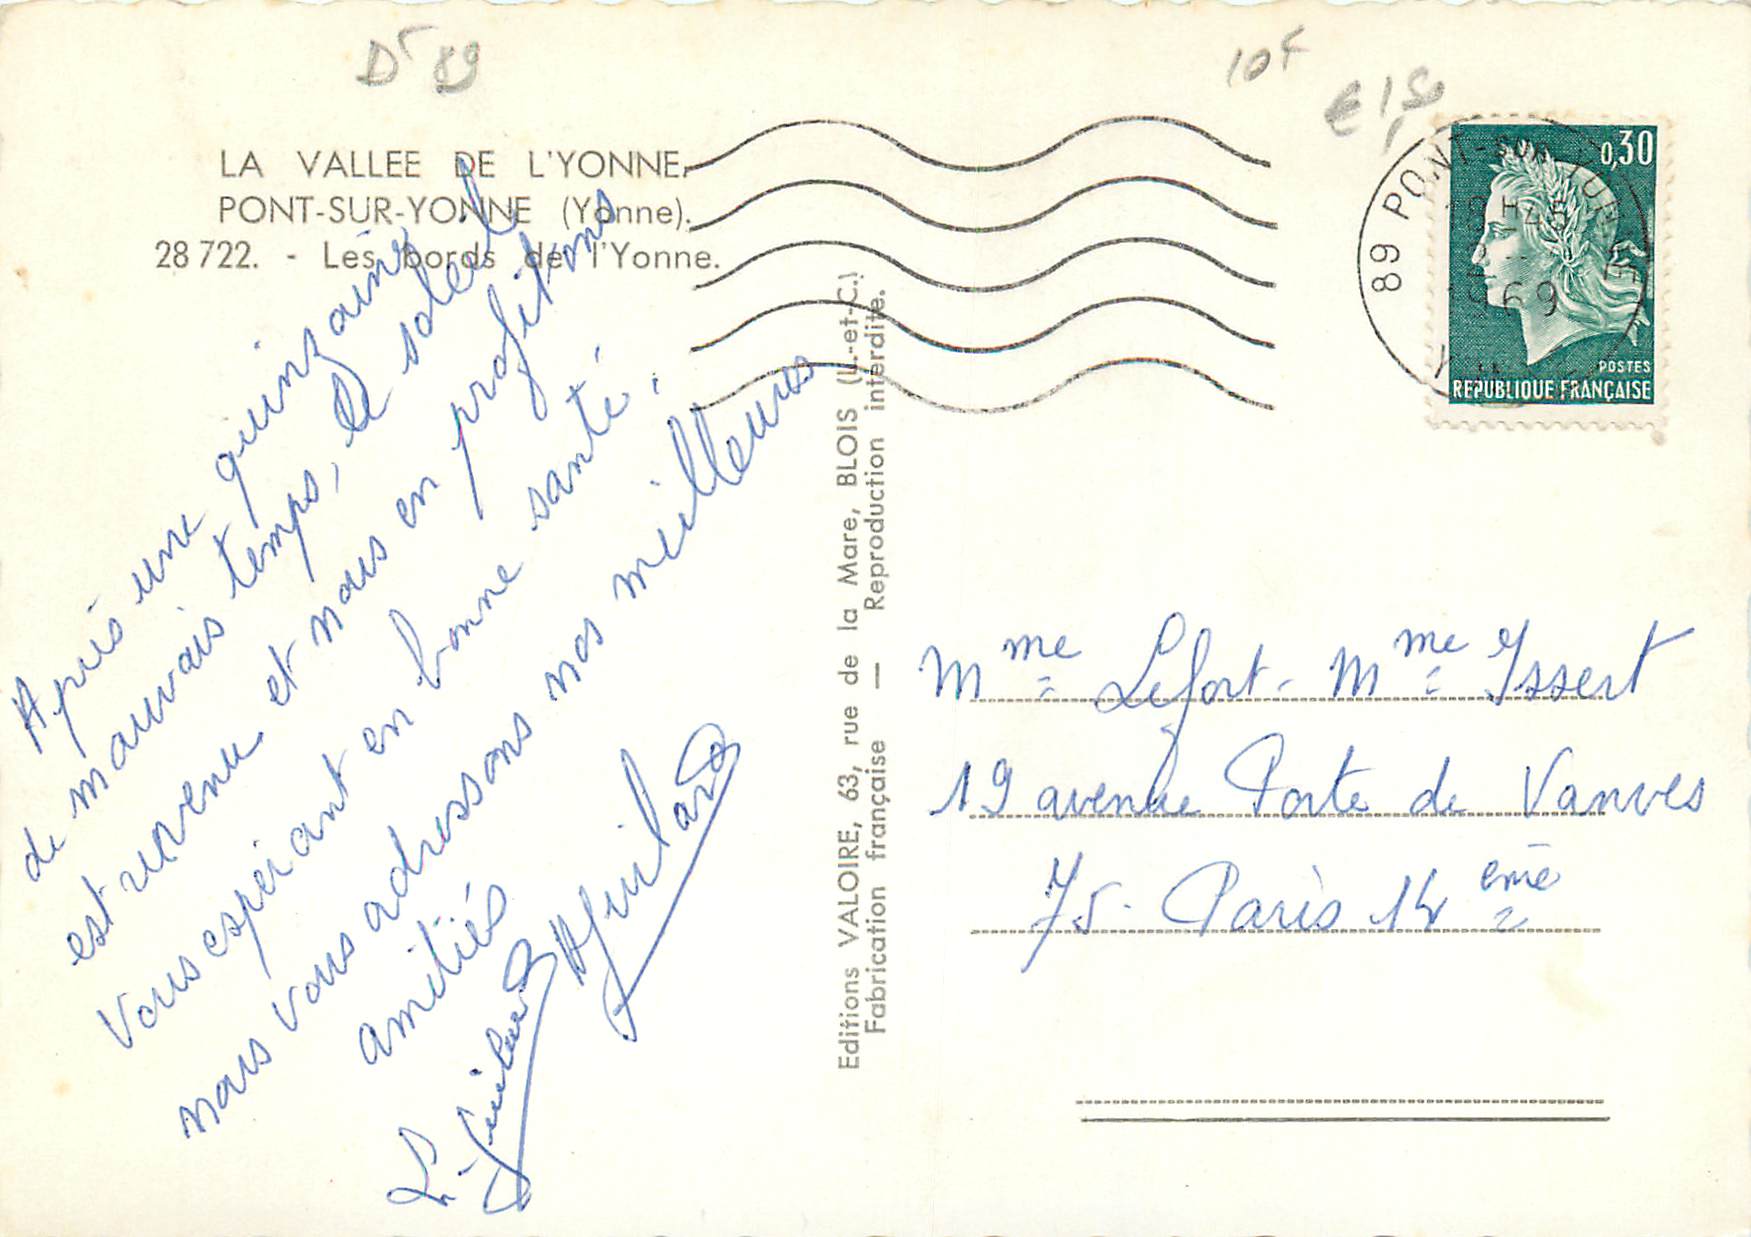 Dt 89
10F
€ 1,50
LA VALLEE DE L'YONNE.
PONT-SUR-YONNE (Yonne).
28 722. - Les bords de l'Yonne.
Après une quinzaine
de mauvais temps, le soleil
est revenu et nous en profitons
Vous espérant en bonne santé,
nous vous adressons nos meilleures
amitiés
L. Guilard AGuilard
Editions VALOIRE, 63, rue de la Mare, BLOIS (L.-et-C.)
Fabrication française — Reproduction interdite.
0,30
POSTES
REPUBLIQUE FRANÇAISE
89 PONT-SUR-YONNE
1969
Mme Lefort - Mme Issert
19 avenue Porte de Vanves
75 - Paris 14 ème